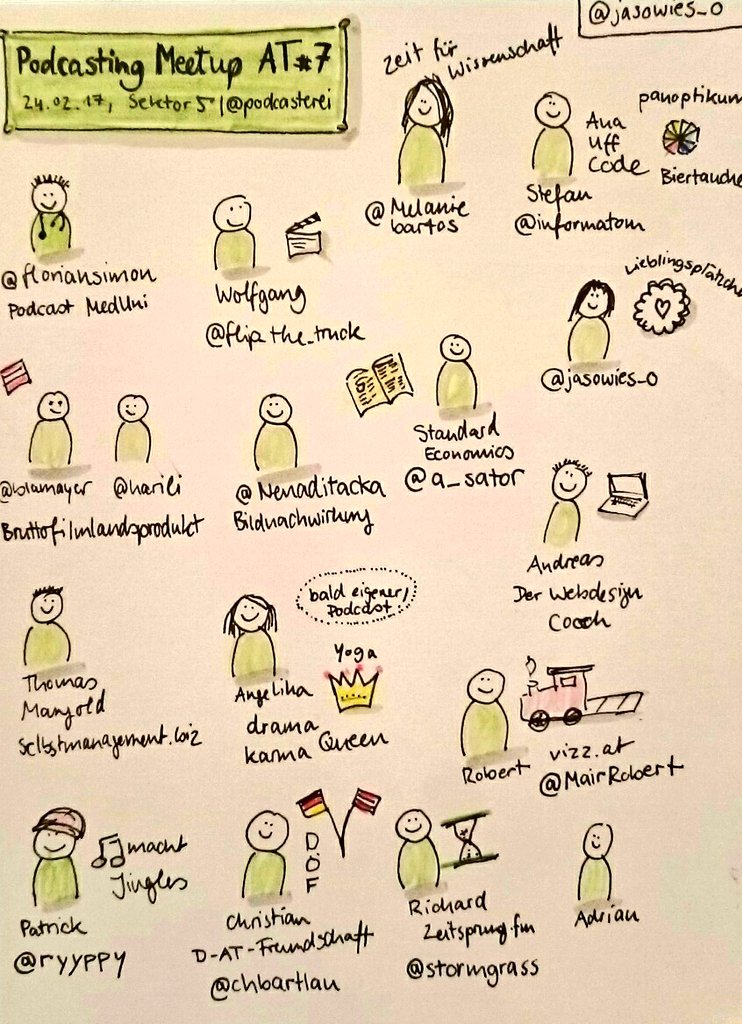 @jasowies_o
Podcasting Meetup AT#7
24.02.17, Sektor 5 | @podcasterei
Zeit für
Wissenschaft
@Melanie
bartos
Aua
uff
Code
Stefan
@informatom
panoptikum
Biertauche
@floriansimon
Podcast MedUni
Wolfgang
@flip_the_truck
Lieblingsplätzche
@jasowies_o
@blamayer
@harili
Bruttofilmlandsprodukt
@Nenaditacka
Bildnachwirkung
Standard
Economics
@a_sator
Andreas
Der Webdesign
Coach
Thomas
Mangold
Selbstmanagement.biz
bald eigener
Podcast!
Yoga
Angelika
drama
karma Queen
Robert
vizz.at
@MairRobert
macht
Jingles
Patrick
@ryyppy
DÖF
Christian
D-AT-Freundschaft
@chbartlau
Richard
Zeitsprung.fm
@stormgrass
Adrian